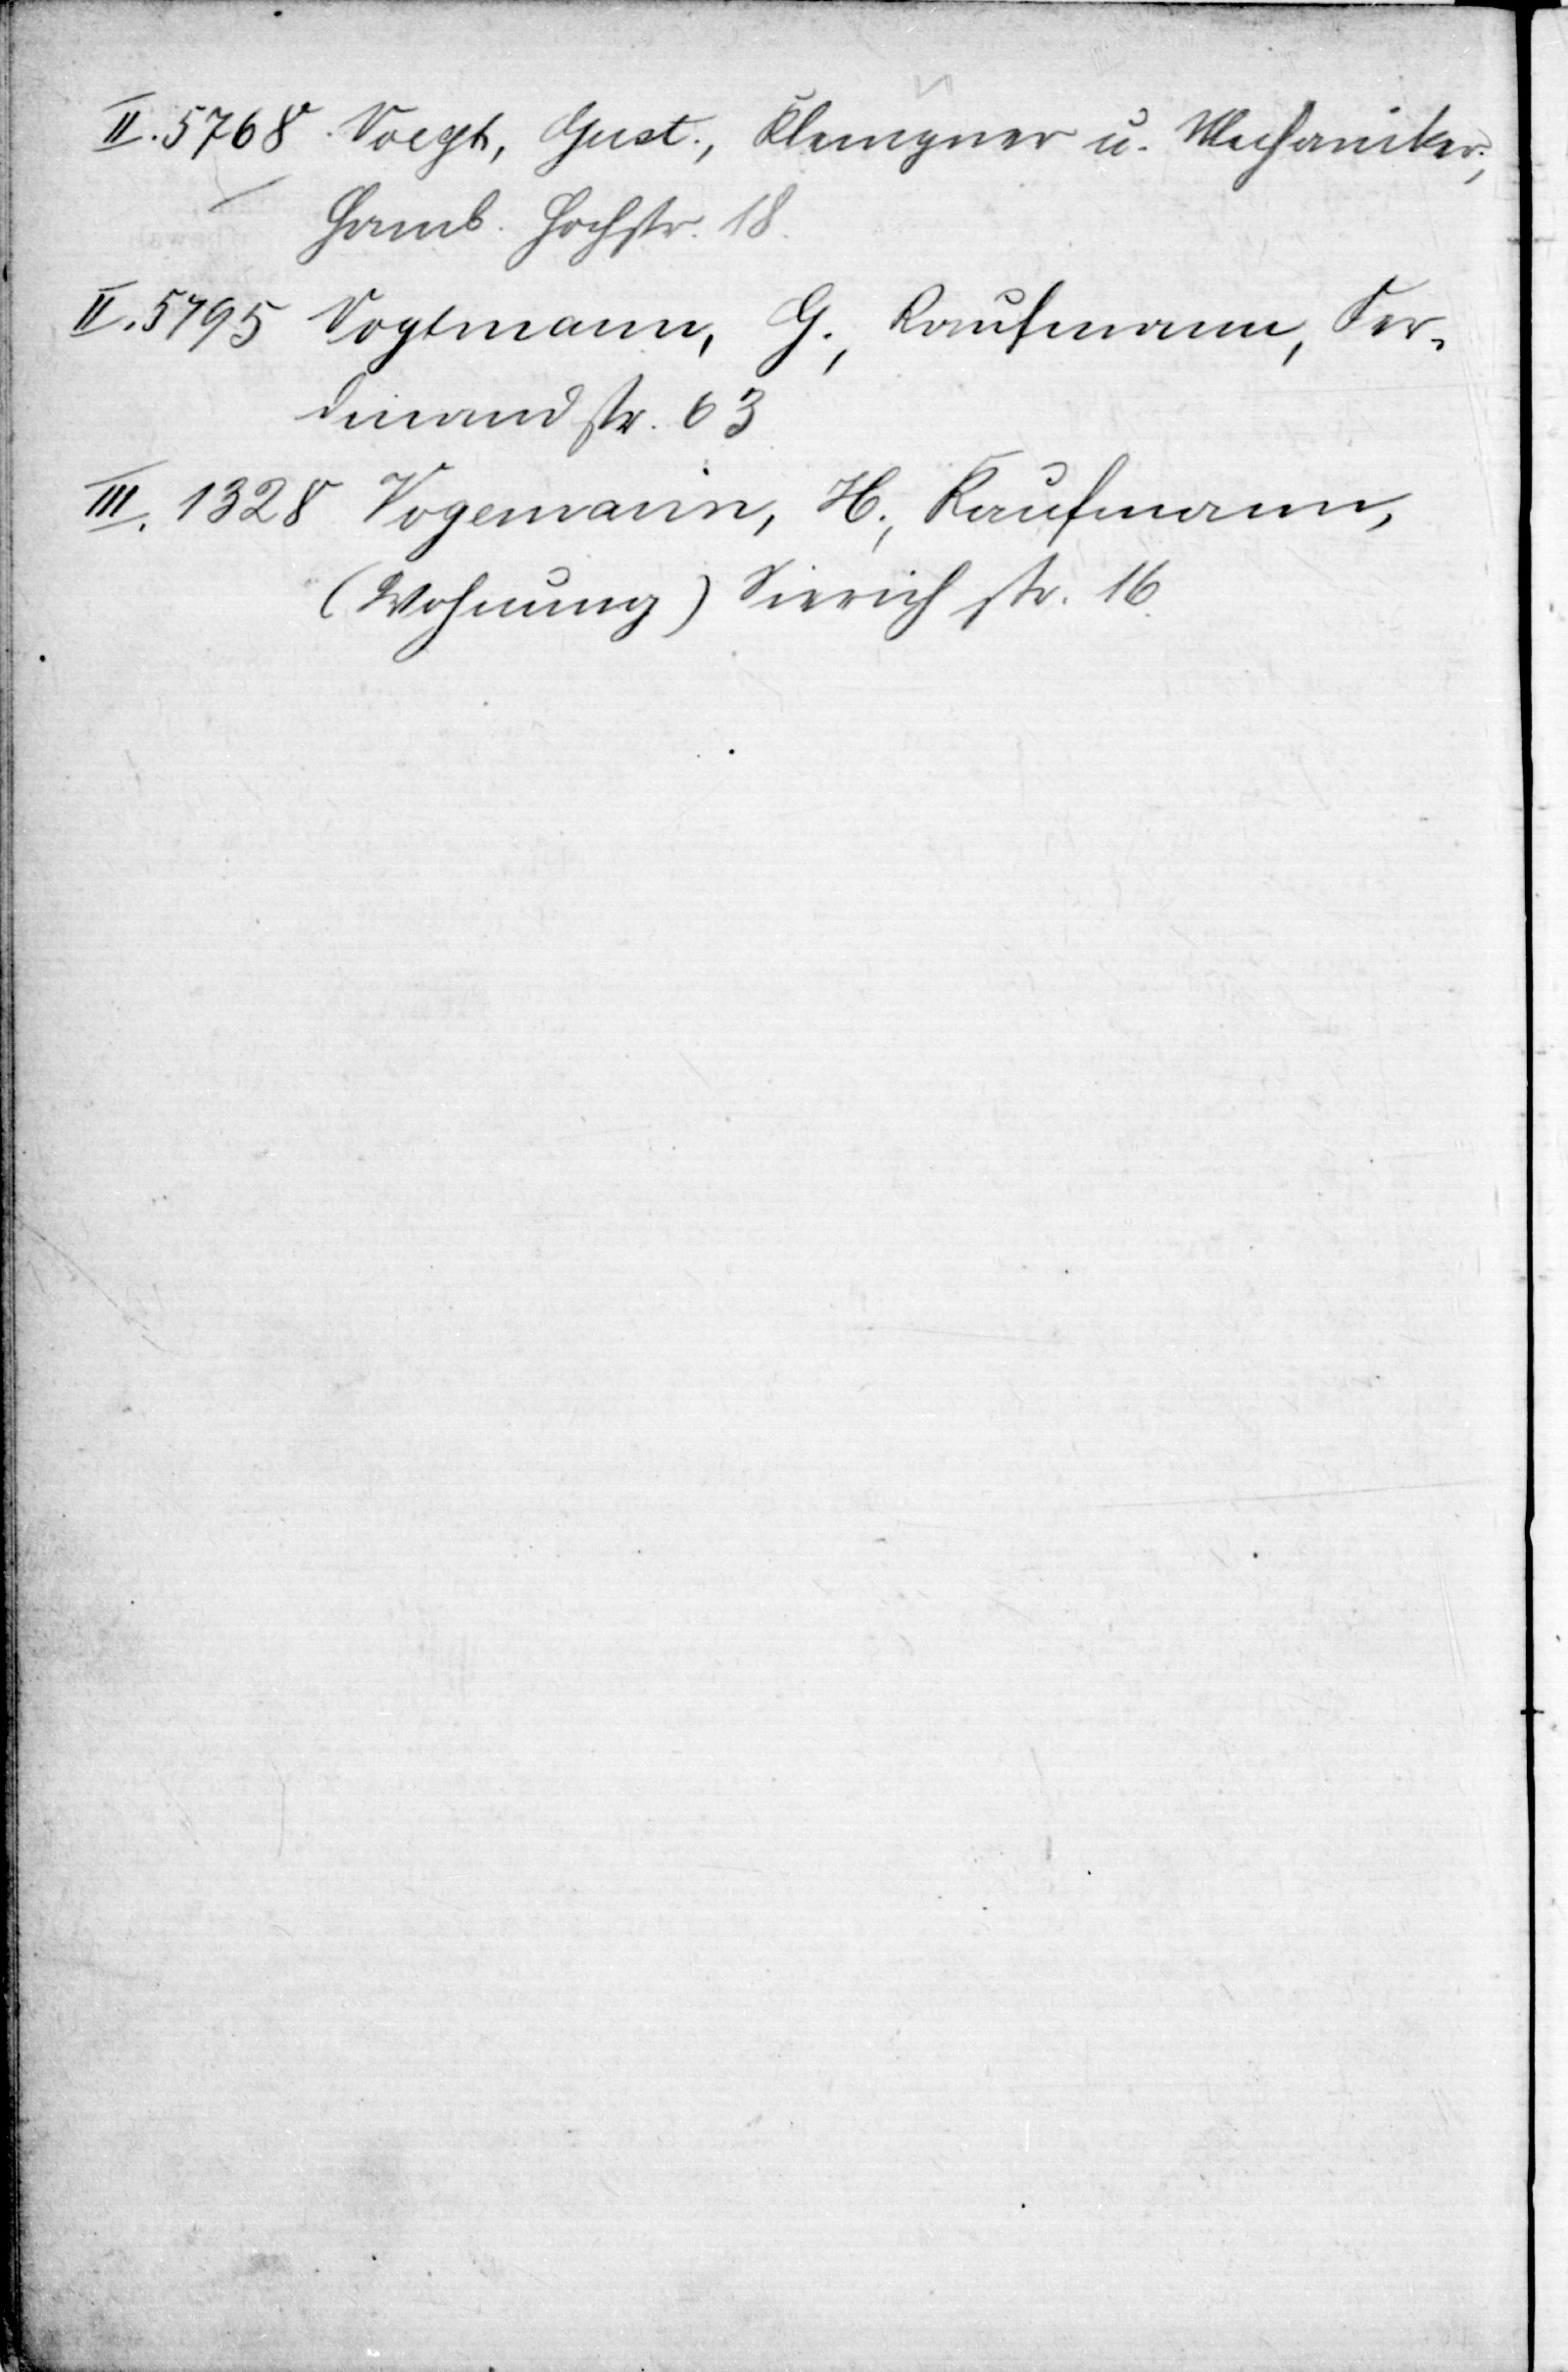 II. 5768 Voegt, Gust., Klempner u. Mechaniker,
Hamb. Hochstr. 18.
II. 5795 Vogtmann, G., Kaufmann, Fer-
dinandstr. 63
III. 1328 Vogemann, H., Kaufmann,
(Wohnung) Sierichstr. 16.